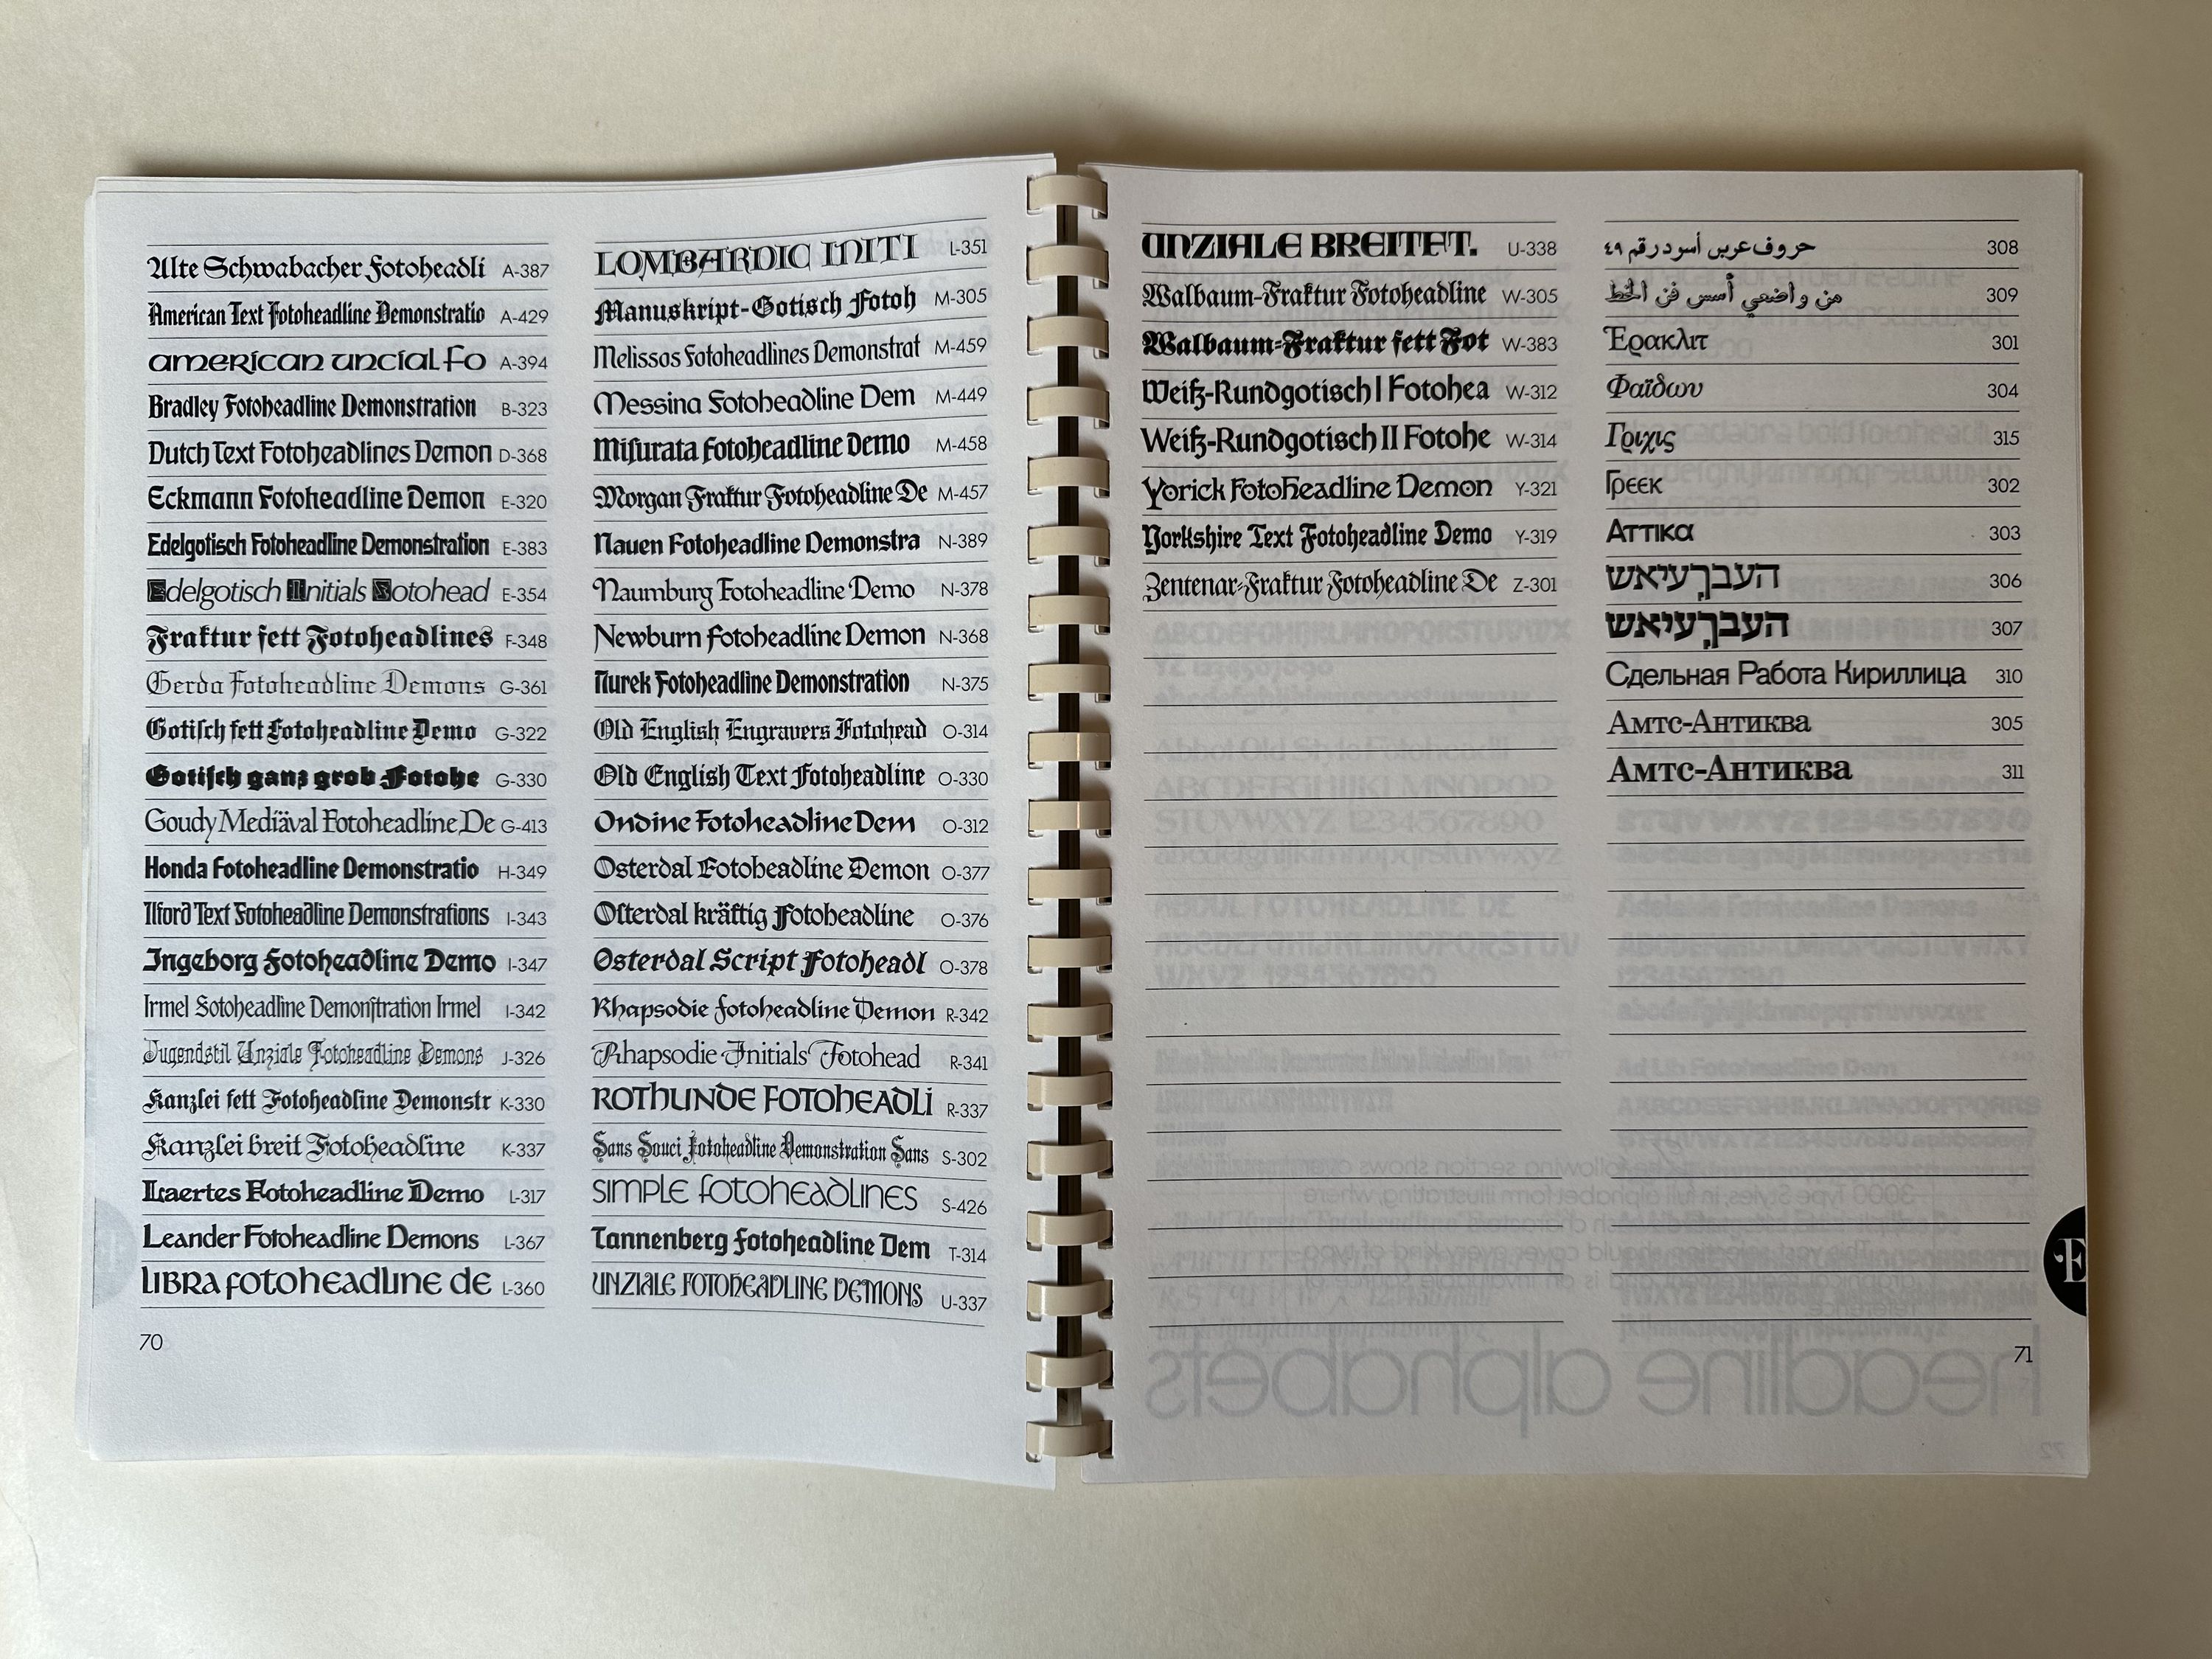 Alte Schwabacher Fotoheadli A-387
American Text Fotoheadline Demonstratio A-429
american uncial fo A-394
Bradley Fotoheadline Demonstration B-323
Dutch Text Fotoheadlines Demon D-368
Eckmann Fotoheadline Demon E-320
Edelgotisch Fotoheadline Demonstration E-383
Edelgotisch Initials Fotohead E-354
Fraktur fett Fotoheadlines F-348
Gerda Fotoheadline Demons G-361
Gotisch fett Fotoheadline Demo G-322
Gotisch ganz grob Fotohe G-330
Goudy Mediäval Fotoheadline De G-413
Honda Fotoheadline Demonstratio H-349
Ilford Text Fotoheadline Demonstrations I-343
Ingeborg Fotoheadline Demo I-347
Irmel Fotoheadline Demonſtration Irmel I-342
Jugendstil Unziale Fotoheadline Demons J-326
Kanzlei fett Fotoheadline Demonstr K-330
Kanzlei breit Fotoheadline K-337
Laertes Fotoheadline Demo L-317
Leander Fotoheadline Demons L-367
LIBRA fotoheadline de L-360
70
LOMBARDIC INITI L-351
Manuskript-Gotisch Fotoh M-305
Melissos Fotoheadlines Demonstrat M-459
Messina Fotoheadline Dem M-449
Miſurata Fotoheadline Demo M-458
Morgan Fraktur Fotoheadline De M-457
Nauen Fotoheadline Demonstra N-389
Naumburg Fotoheadline Demo N-378
Newburn Fotoheadline Demon N-368
Nurek Fotoheadline Demonstration N-375
Old English Engravers Fotohead O-314
Old English Text Fotoheadline O-330
Ondine Fotoheadline Dem O-312
Osterdal Fotoheadline Demon O-377
Oſterdal kräftig Fotoheadline O-376
Osterdal Script Fotoheadl O-378
Rhapsodie Fotoheadline Demon R-342
Rhapsodie Initials Fotohead R-341
ROTHUNDE FOTOHEADLI R-337
Sans Souci Fotoheadline Demonstration Sans S-302
SIMPLE FOTOHEADLINES S-426
Tannenberg Fotoheadline Dem T-314
UNZIALE FOTOHEADLINE DEMONS U-337
UNZIALE BREITET. U-338
Walbaum-Fraktur Fotoheadline W-305
Walbaum-Fraktur fett Fot W-383
Weiß-Rundgotisch I Fotohea W-312
Weiß-Rundgotisch II Fotohe W-314
Yorick Fotoheadline Demon Y-321
Yorkshire Text Fotoheadline Demo Y-319
Zentenar-Fraktur Fotoheadline De Z-301
حروف عربى أسود رقم ٤٩ 308
من واضعي أسس فن الخط 309
Ἑρακλιτ 301
Φαΐδων 304
Γριχις 315
Γρεεκ 302
Αττικα 303
העברךעיאש 306
העברךעיאש 307
Сдельная Работа Кириллица 310
Амтс-Антиква 305
Амтс-Антиква 311
71